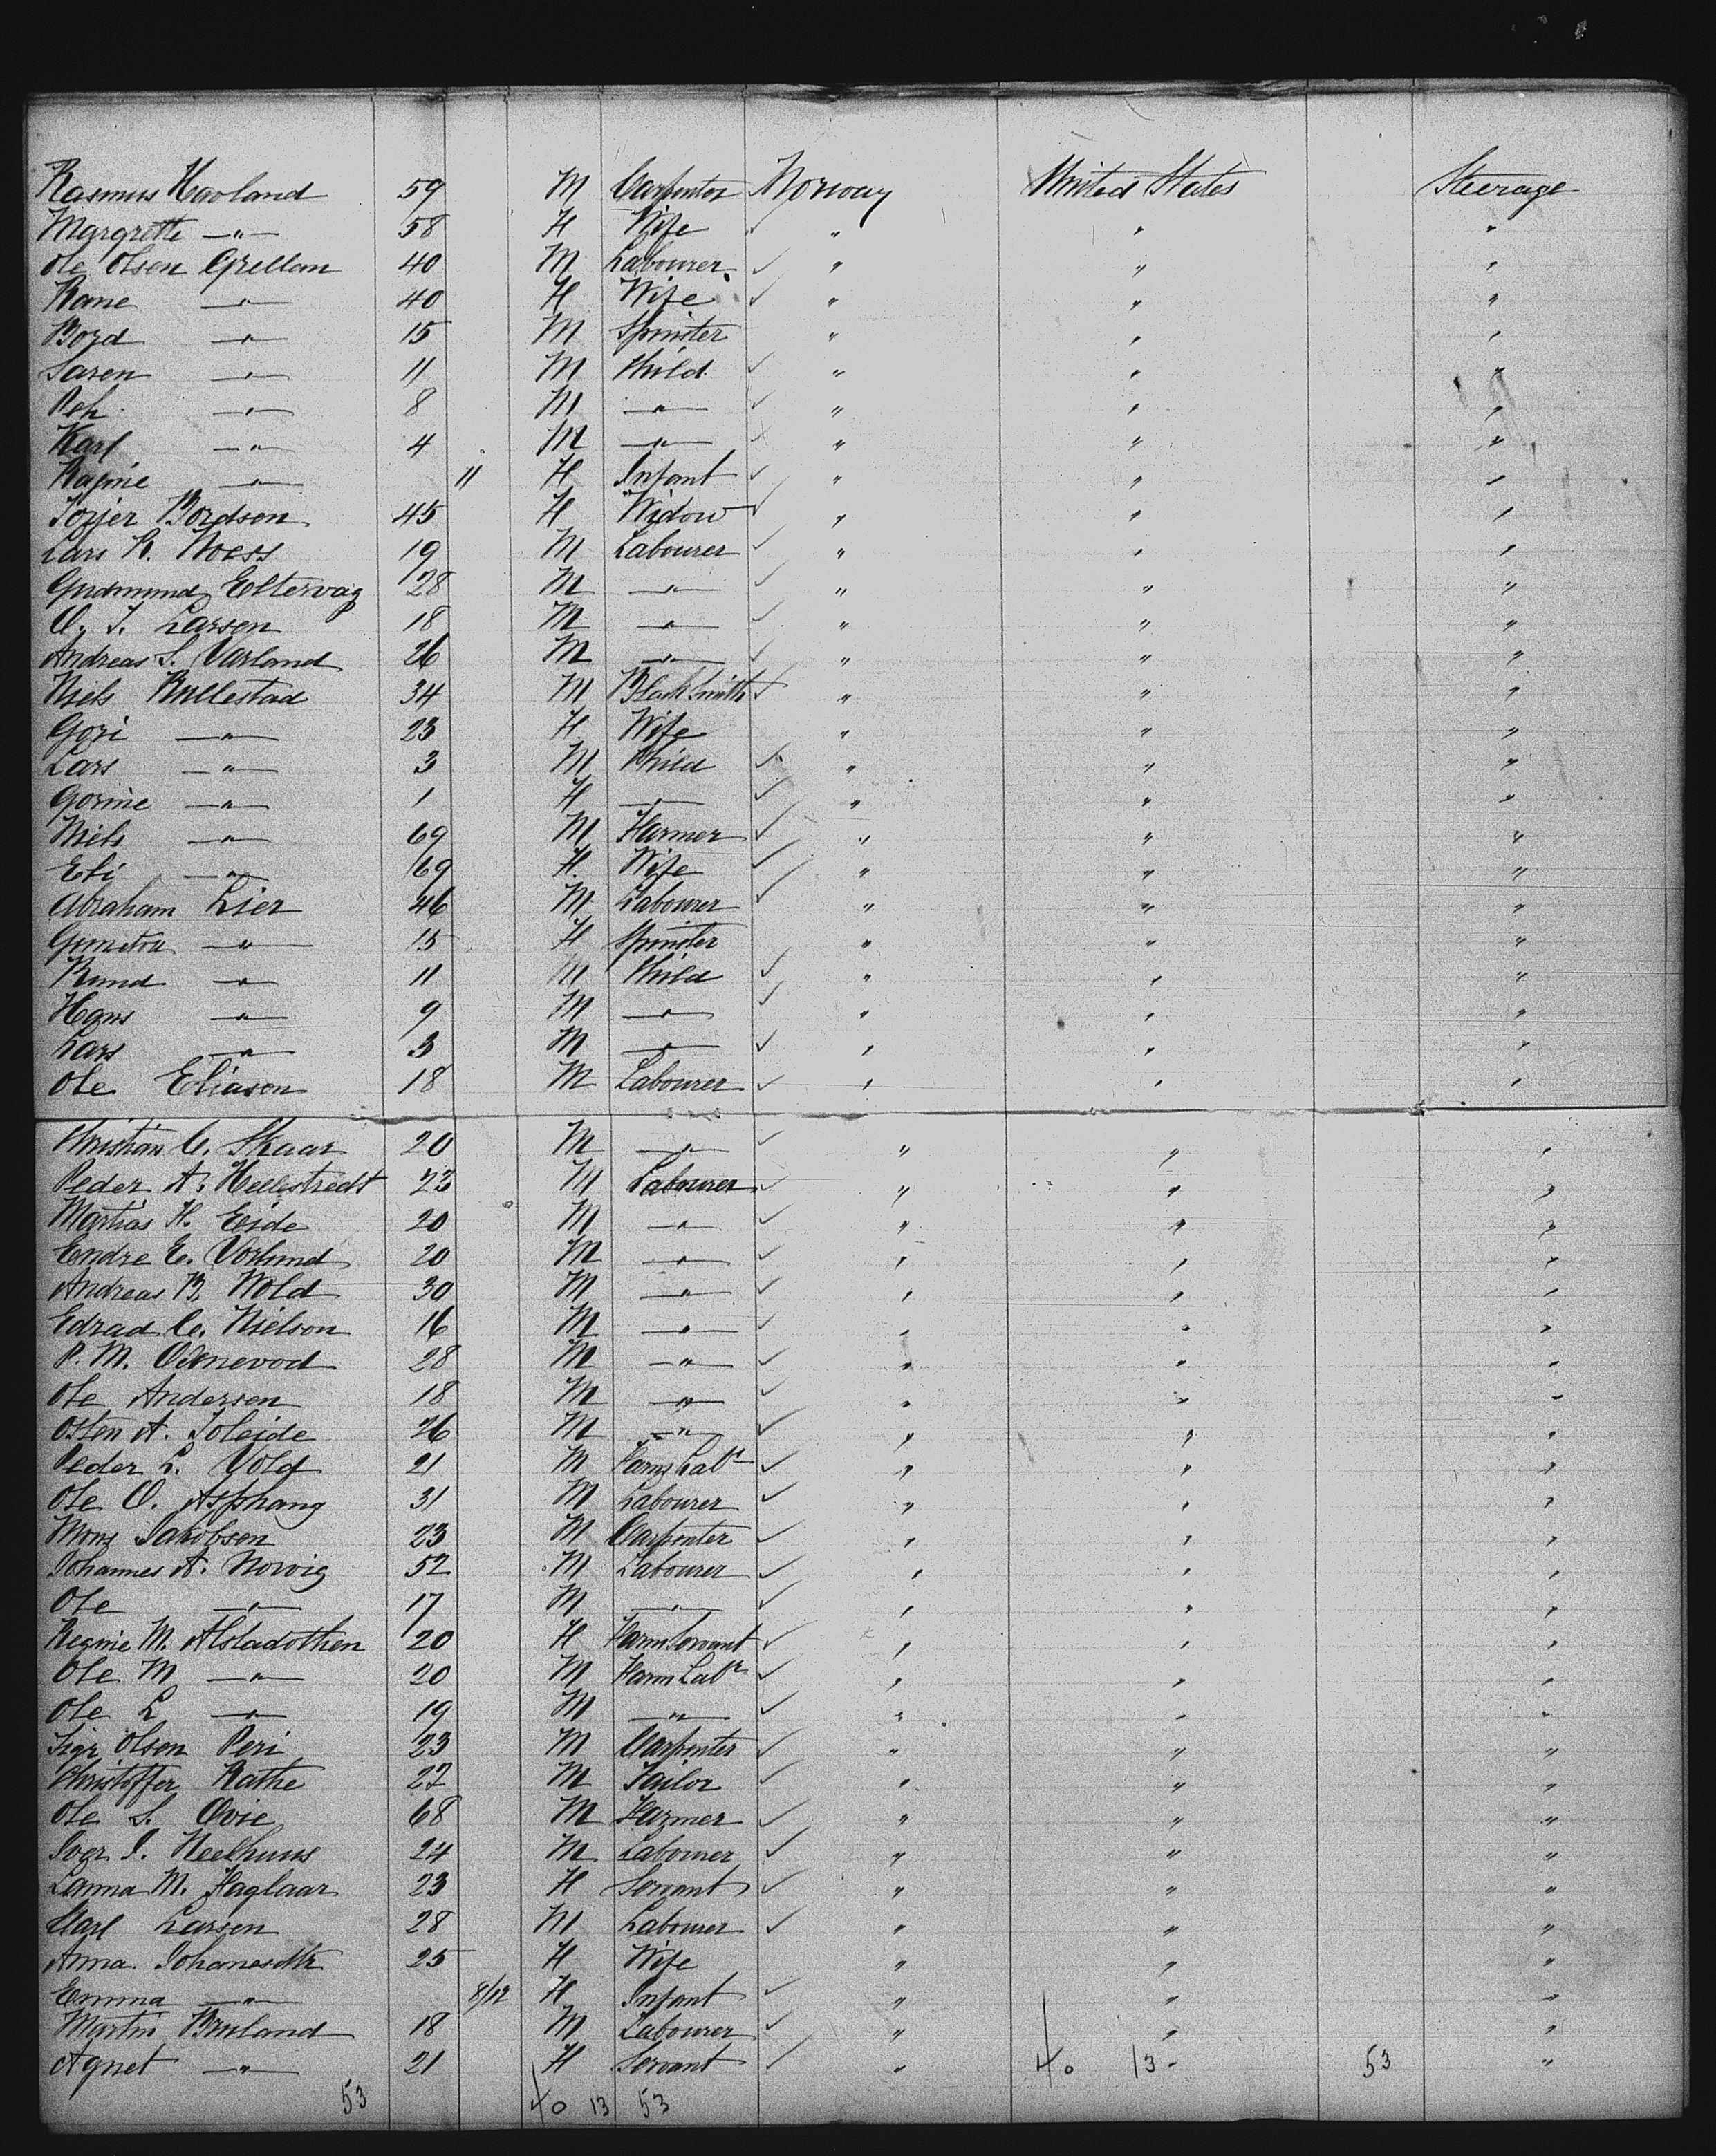 Rasmus Havland 59 M Carpenter Norway United States Steerage
Margrette —"— 58 F Wife " " "
Ole Olsen Grellam 40 M Labourer " " "
Rane —"— 40 F Wife " " "
Bord —"— 15 M Spinster " " "
Saren —"— 11 M Child " " "
Peh —"— 8 M —"— " " "
Karl —"— 4 M —"— " " "
Ragine —"— 11 F Infant " " "
Torjer Bordsen 45 F Widow " " "
Lars R. Noess 19 M Labourer " " "
Gudmund Eltervag 28 M —"— " " "
O. T. Larsen 18 M —"— " " "
Andreas S. Varland 26 M —"— " " "
Niels Bullestad 34 M BlackSmith " " "
Gori —"— 23 F Wife " " "
Lars —"— 3 M Child " " "
Gorine —"— 1 F —"— " " "
Niels —"— 69 M Farmer " " "
Eli —"— 69 F Wife " " "
Abraham Lier 46 M Labourer " " "
—"— 15 F Spinster " " "
Knud —"— 11 M Child " " "
Hans —"— 9 M —"— " " "
Lars —"— 3 M —"— " " "
Ole Eliason 18 M Labourer " " "
Christian C. Skaar 20 M —"— " " "
Peder A. Hellestredt 23 M Labourer " " "
Martias H. Eide 20 M —"— " " "
Endre E. Vorlund 20 M —"— " " "
Andreas B. Wold 30 M —"— " " "
Edrad C. Nielson 16 M —"— " " "
P. M. Odnevod 28 M —"— " " "
Ole Andersen 18 M —"— " " "
Osten A. Soleide 26 M —"— " " "
Peder L. Vold 21 M Farm Labr " " "
Ole O. Asphang 31 M Labourer " " "
Mons Jakobsen 23 M Carpenter " " "
Johannes A. Norvig 52 M Labourer " " "
Ole —"— 17 M —"— " " "
Regnie M. Alstadothen 20 F Farm Servant " " "
Ole M —"— 20 M Farm Labr " " "
Ole L —"— 19 M —"— " " "
Olsen Peri 23 M Carpenter " " "
Christoffer Rathe 27 M Tailor " " "
Ole S. Ovie 68 M Farmer " " "
Iver I. Neelhuus 24 M Labourer " " "
Lanna M. Haglaar 23 F Servant " " "
Karl Larsen 28 M Labourer " " "
Anna Johanesdtr 25 F Wife " " "
Emma —"— 8/12 F Infant " " "
Martin Bruland 18 M Labourer " " "
Agnet —"— 21 F Servant " 40 13 - 53 "
53 40 13 53